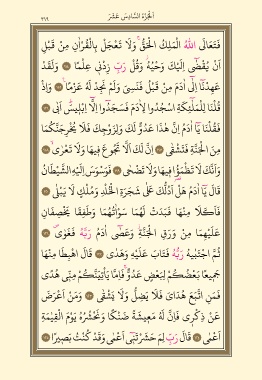 الجزء السادس عشر
٣١٩
فَتَعَالَى اللهُ الْمَلِكُ الْحَقُّ وَلَا تَعْجَلْ بِالْقُرْاٰنِ مِنْ قَبْلِ
اَنْ يُقْضٰٓى اِلَيْكَ وَحْيُهُ وَقُلْ رَبِّ زِدْنٖى عِلْمًا ﴿١١٤﴾ وَلَقَدْ
عَهِدْنَٓا اِلٰٓى اٰدَمَ مِنْ قَبْلُ فَنَسِىَ وَلَمْ نَجِدْ لَهُ عَزْمًا ﴿١١٥﴾ وَاِذْ
قُلْنَا لِلْمَلٰٓئِكَةِ اسْجُدُوا لِاٰدَمَ فَسَجَدُٓوا اِلَّٓا اِبْلٖيسَ اَبٰى ﴿١١٦﴾
فَقُلْنَا يَٓا اٰدَمُ اِنَّ هٰذَا عَدُوٌّ لَكَ وَلِزَوْجِكَ فَلَا يُخْرِجَنَّكُمَا
مِنَ الْجَنَّةِ فَتَشْقٰى ﴿١١٧﴾ اِنَّ لَكَ اَلَّا تَجُوعَ فٖيهَا وَلَا تَعْرٰى ﴿١١٨﴾
وَاَنَّكَ لَا تَظْمَؤُ۬ا فٖيهَا وَلَا تَضْحٰى ﴿١١٩﴾ فَوَسْوَسَ اِلَيْهِ الشَّيْطَانُ
قَالَ يَٓا اٰدَمُ هَلْ اَدُلُّكَ عَلٰى شَجَرَةِ الْخُلْدِ وَمُلْكٍ لَا يَبْلٰى ﴿١٢٠﴾
فَاَكَلَا مِنْهَا فَبَدَتْ لَهُمَا سَوْاٰتُهُمَا وَطَفِقَا يَخْصِفَانِ
عَلَيْهِمَا مِنْ وَرَقِ الْجَنَّةِ وَعَصٰٓى اٰدَمُ رَبَّهُ فَغَوٰى ﴿١٢١﴾
ثُمَّ اجْتَبٰيهُ رَبُّهُ فَتَابَ عَلَيْهِ وَهَدٰى ﴿١٢٢﴾ قَالَ اهْبِطَا مِنْهَا
جَمٖيعًا بَعْضُكُمْ لِبَعْضٍ عَدُوٌّ فَاِمَّا يَاْتِيَنَّكُمْ مِنّٖى هُدًى
فَمَنِ اتَّبَعَ هُدَاىَ فَلَا يَضِلُّ وَلَا يَشْقٰى ﴿١٢٣﴾ وَمَنْ اَعْرَضَ
عَنْ ذِكْرٖى فَاِنَّ لَهُ مَعٖيشَةً ضَنْكًا وَنَحْشُرُهُ يَوْمَ الْقِيٰمَةِ
اَعْمٰى ﴿١٢٤﴾ قَالَ رَبِّ لِمَ حَشَرْتَنٖٓى اَعْمٰى وَقَدْ كُنْتُ بَصٖيرًا ﴿١٢٥﴾